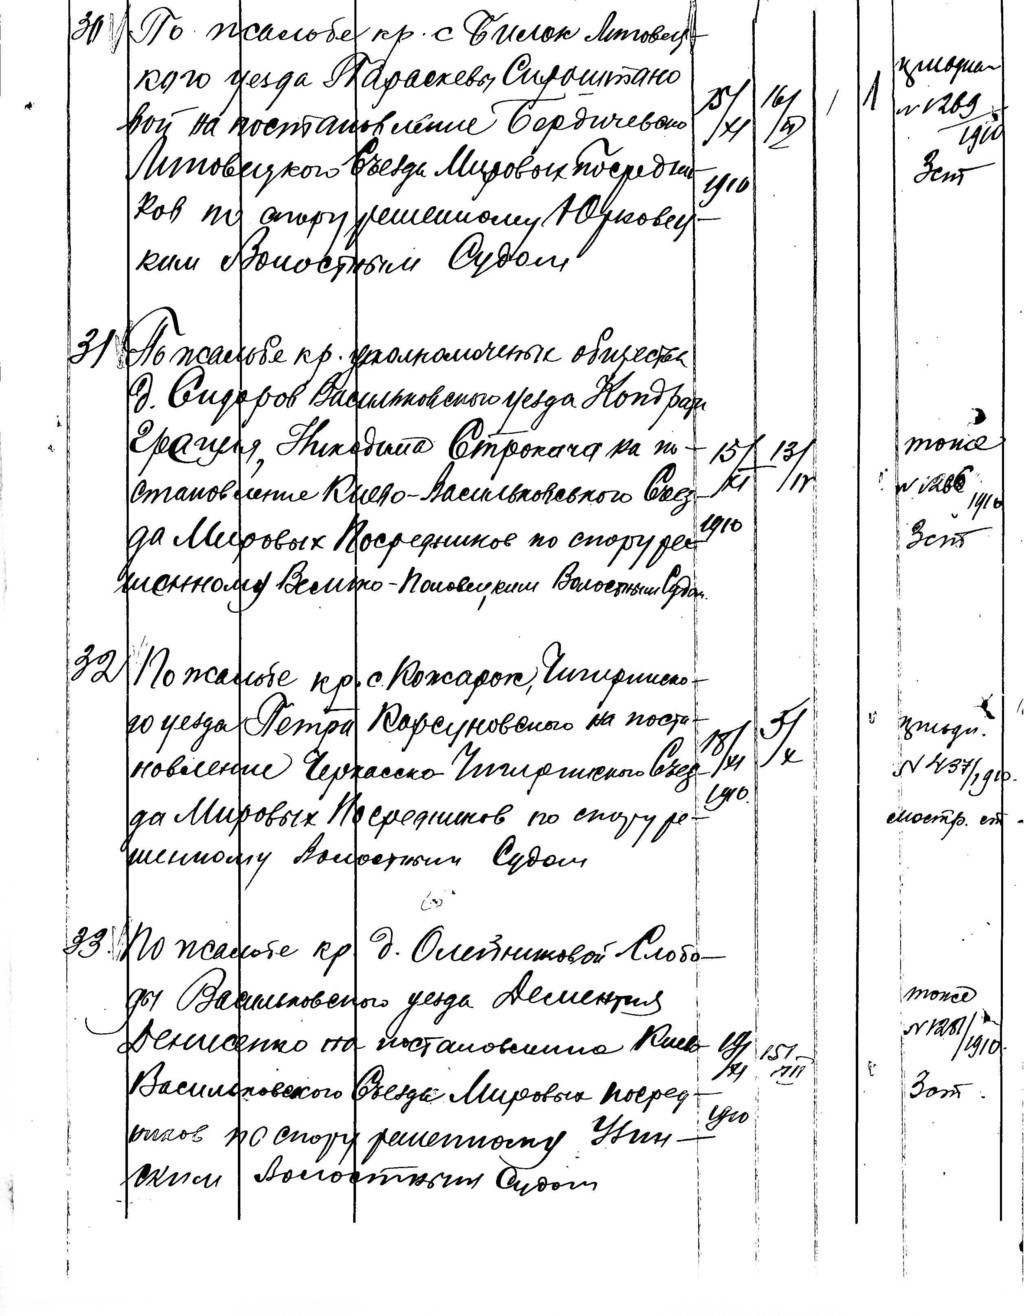 30 По жалобе кр. с Билок Липовец-
кого уезда Параскевы Сироштано
вой на постановление Бердичевско
Липовецкого Съезда Мировых Посредни
ков по спору решенному Юрковец-
ким Волостным Судом
15/XI 1910
16/
1
№ 1269/1910
3 ст
31 По жалобе кр. уполномоченых общества
д. Сидоров Васильковского уезда Кондрата
Никодима Строкача на по-
становление Киево-Васильковського Съез
да Мировых Посредников по спору ре
шенному Велико-Половецким Волостным Судом.
15/XI 1910
13/IV
тоже
1910
3 ст
32 По жалобе кр. с. Кожарок, Чигиринско-
го уезда Петра Корсуновского на поста-
новление Черкасско Чигиринского Съез
да Мировых Посредников по спору ре-
шенному Волостным Судом
18/XI 1910.
3/X
№ 437/1910.
33. По жалобе кр. д. Олейниковой Слобо-
ды Васильковского уезда Дементия
Денисенко на постановление Киево
Васильковского Съезда Мировых посред-
ников по спору решенному
ским Волостным Судом
19/XI 1910
15/
тоже
№ 1281/1910.
3 ст.